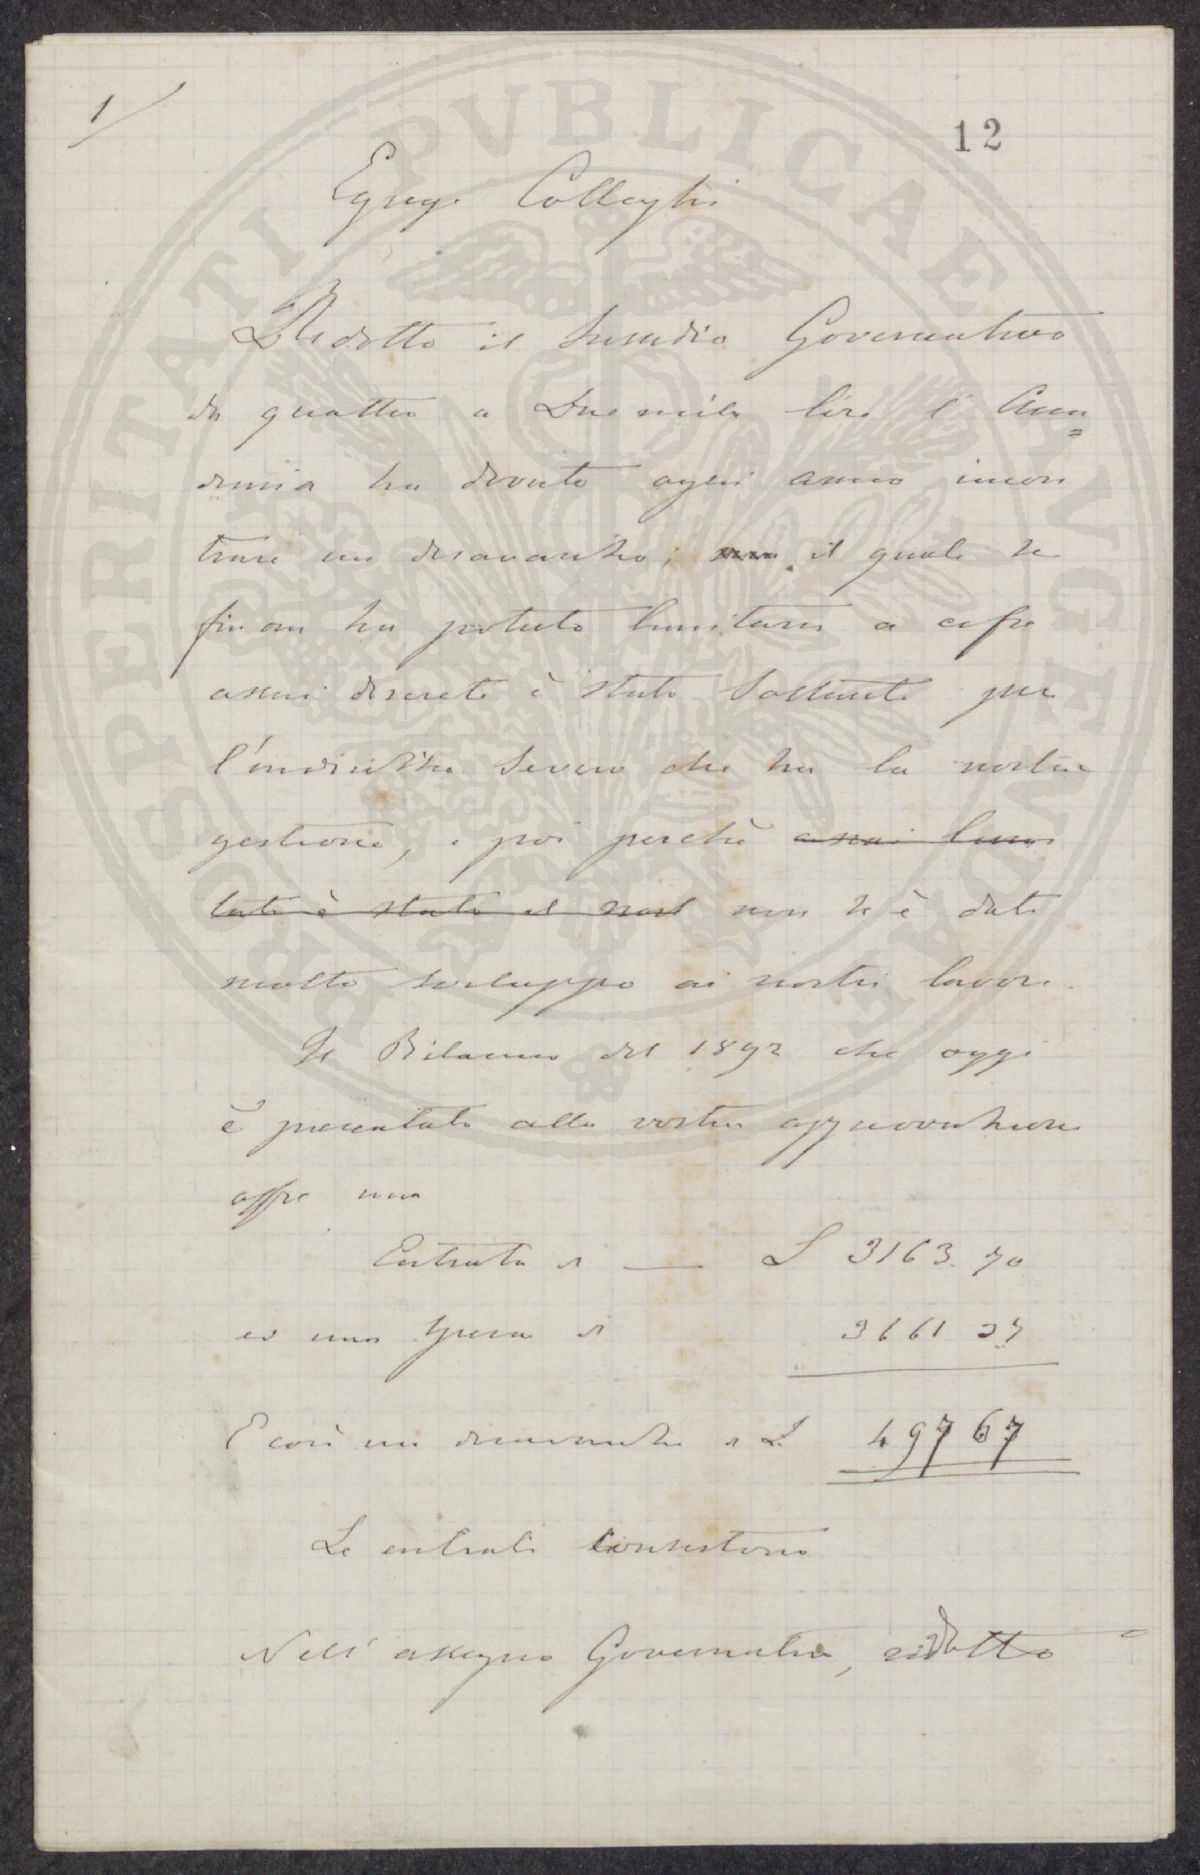 1/
12
Egregi Colleghi
Ridotto il Sussidio Governativo
da quattro a Due mila lire l'Acca=
demia ha dovuto ogni anno incon
trare un disavanzo; il quale se
fin ora ha potuto limitarsi a cifre
assai discrete è stato soltanto per
l'indirizzo severo che ha la nostra
gestione, e poi perchè assai limi
tato è stato il nost non si è dato
molto sviluppo ai nostri lavori.
Il Bilancio del 1892 che oggi
è presentato alla vostra approvazione
offre una
Entrata di — L 3163.70
ed una spesa di 3661 37
E così un disavanzo di L 497 67
Le entrate consistono
Nell'assegno Governativo, ridotto
PROSPERITATI PVBLICAE AVGENDAE